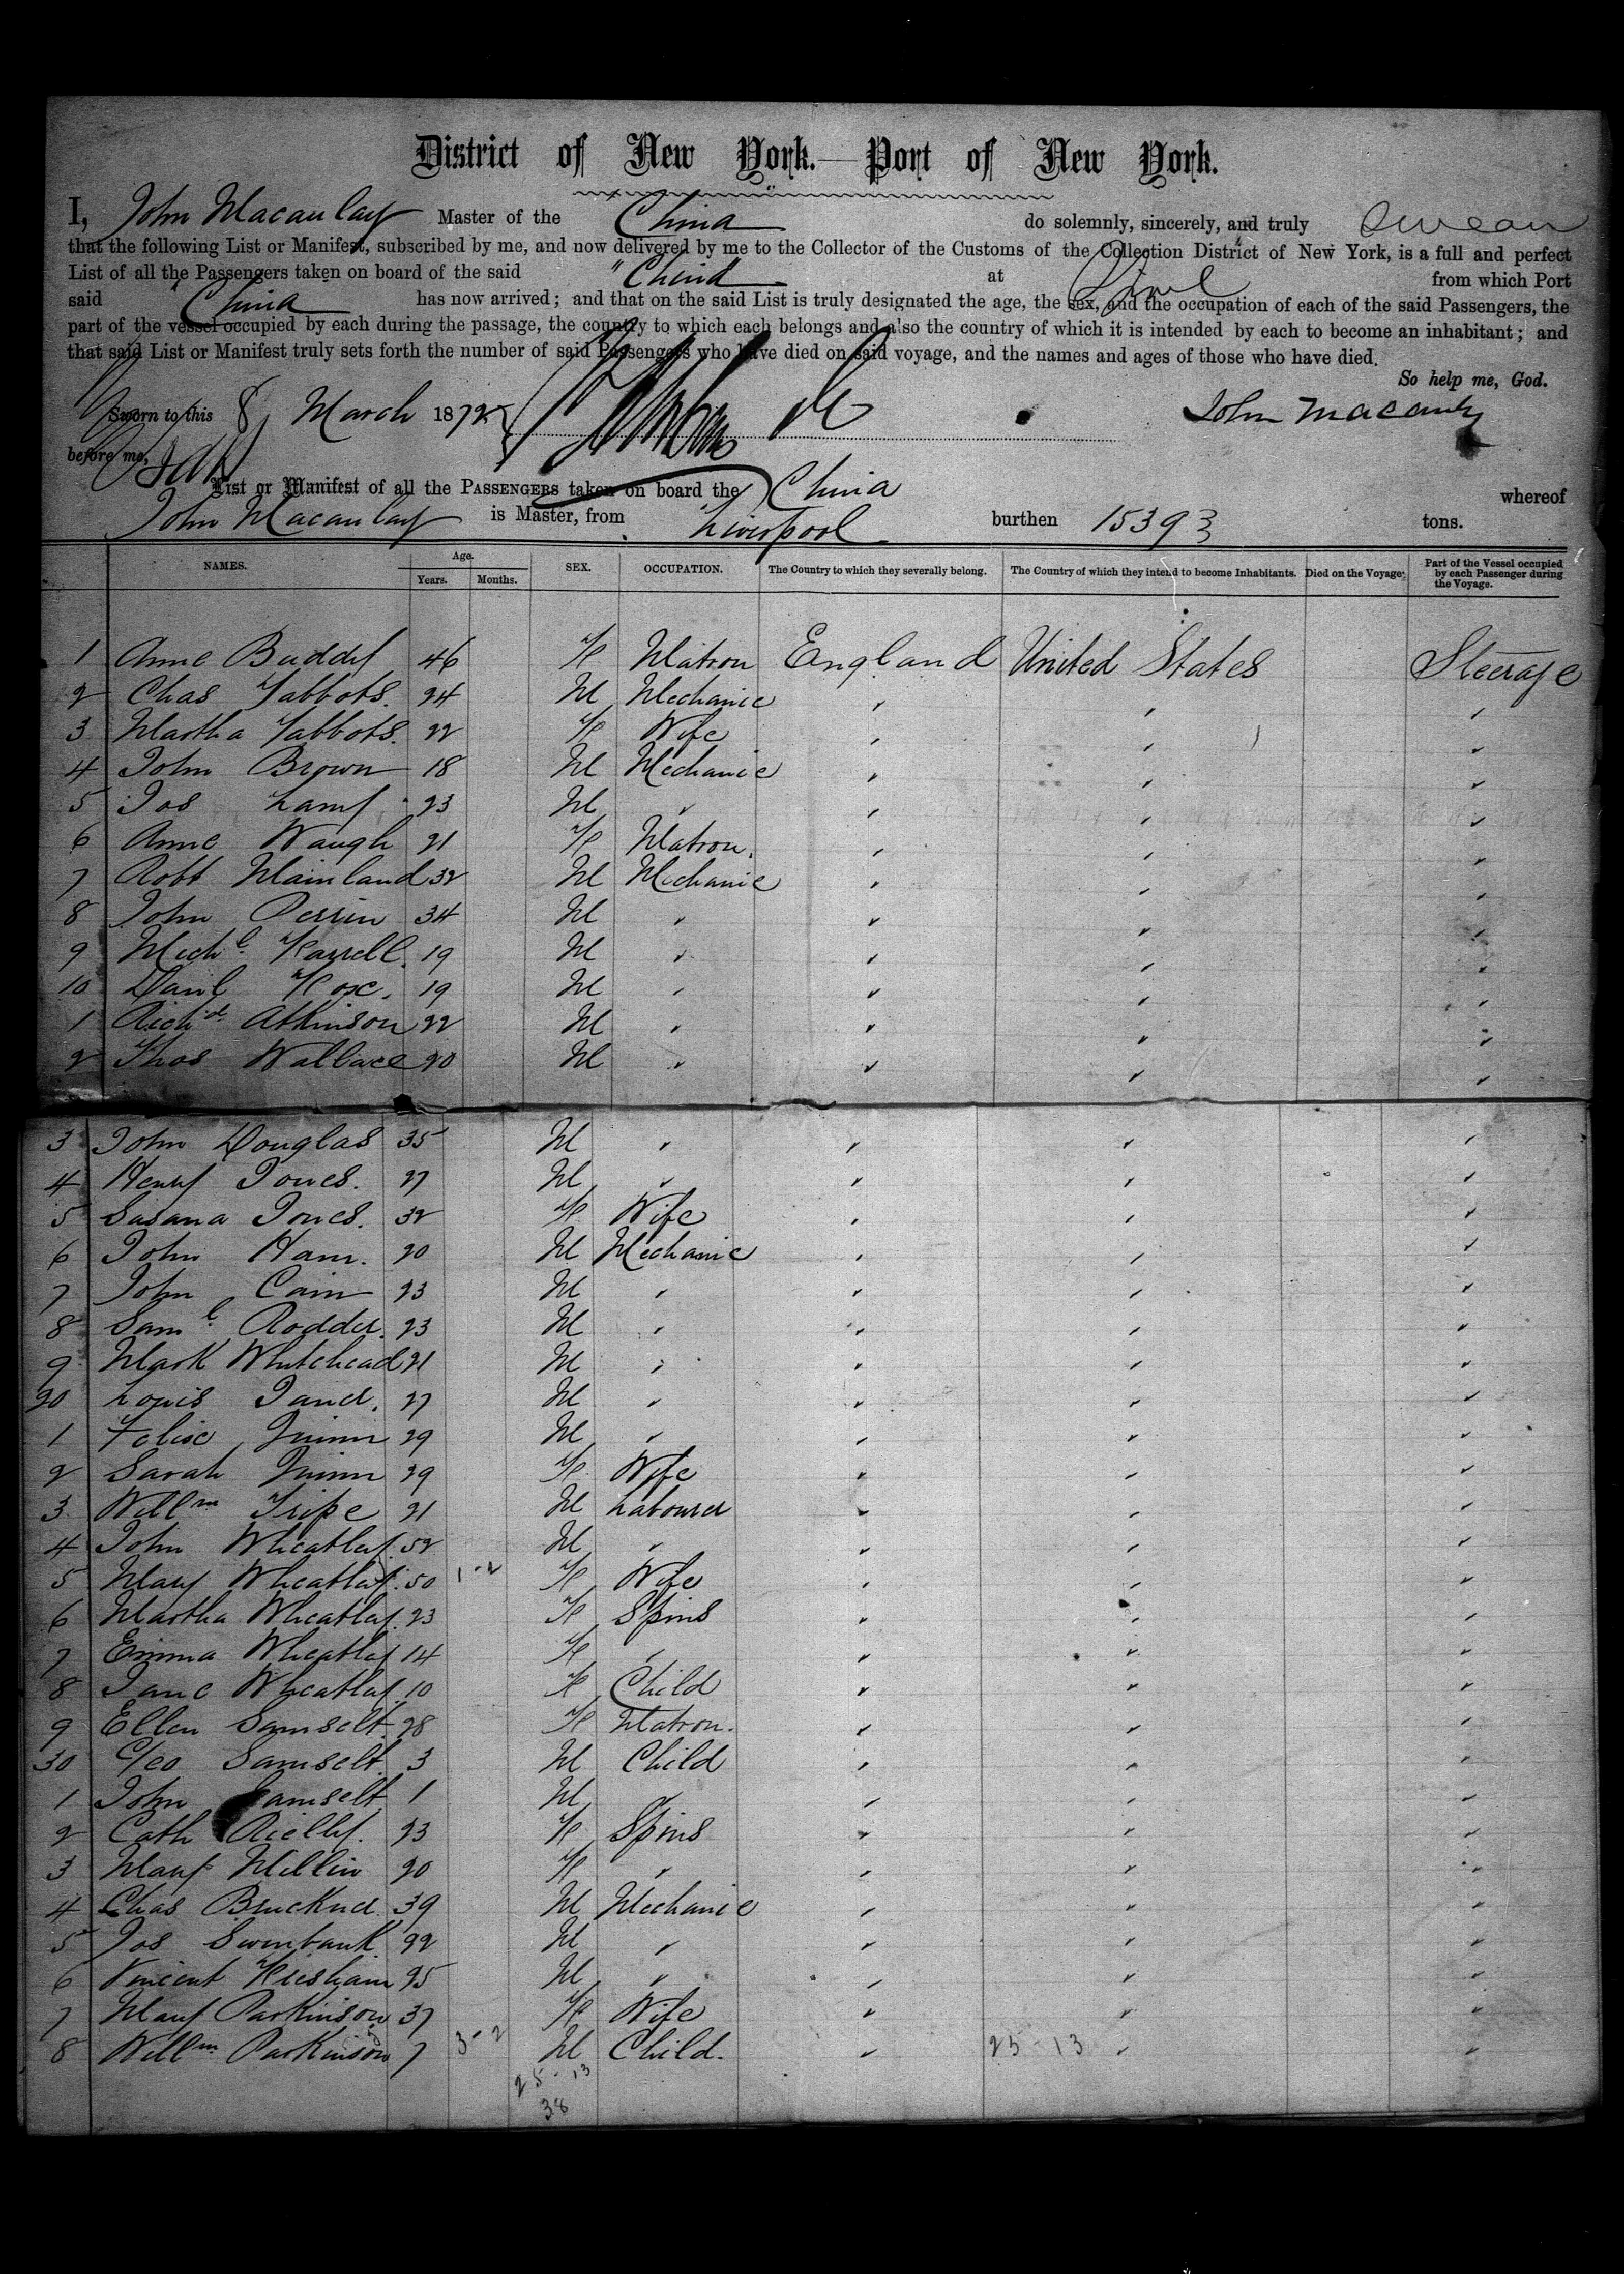 District of New York.—Port of New York.
I, John Macaulay Master of the China do solemnly, sincerely, and truly swear
that the following List or Manifest, subscribed by me, and now delivered by me to the Collector of the Customs of the Collection District of New York, is a full and perfect
List of all the Passengers taken on board of the said "China" at L'pool from which Port
said "China" has now arrived; and that on the said List is truly designated the age, the sex, and the occupation of each of the said Passengers, the
part of the vessel occupied by each during the passage, the country to which each belongs and also the country of which it is intended by each to become an inhabitant; and
that said List or Manifest truly sets forth the number of said Passengers who have died on said voyage, and the names and ages of those who have died.
So help me, God.
Sworn to this 8 March 1872 John Macaulay
before me,
List or Manifest of all the PASSENGERS taken on board the China whereof
John Macaulay is Master, from Liverpool burthen 15393 tons.
NAMES. Age. Years. Months. SEX. OCCUPATION. The Country to which they severally belong. The Country of which they intend to become Inhabitants. Died on the Voyage. Part of the Vessel occupied by each Passenger during the Voyage.
1 Anne Buddy 46 F Matron England United States Steerage
2 Chas Tabbots. 24 M Mechanic " " "
3 Martha Tabbots. 22 F Wife " " "
4 John Brown 18 M Mechanic " " "
5 Jos Lamy 23 M " " " "
6 Anne Waugh 21 F Matron. " " "
7 Robt Mainland 32 M Mechanic " " "
8 John Perrin 34 M " " " "
9 Michl Farrell. 19 M " " " "
10 Danl Fox. 19 M " " " "
1 Richd Atkinson 22 M " " " "
2 Thos Wallace 20 M " " " "
3 John Douglas 35 M " " " "
4 Henry Jones. 27 M " " " "
5 Susana Jones. 32 F Wife " " "
6 John Ham. 20 M Mechanic " " "
7 John Cain 23 M " " " "
8 Saml Rodder. 23 M " " " "
9 Mark Whitehead 21 M " " " "
20 Louis 27 M " " " "
1 Felise Quinn 29 M " " " "
2 Sarah Quinn 29 F Wife " " "
3 Willm Tripe 21 M Labourer " " "
4 John Wheatley. 52 M " " " "
5 Mary Wheatley. 50 1-2 F Wife " " "
6 Martha Wheatley. 23 F Spins " " "
7 Emma Wheatley 14 F " " " "
8 Jane Wheatley. 10 F Child " " "
9 Ellen Samselt. 28 F Matron. " " "
30 Geo Samselt. 3 M Child " " "
1 John Samselt 1 M " " " "
2 Cath Rielly. 23 F Spins " " "
3 Mary Millin 20 F " " " "
4 Chas Bruckner. 39 M Mechanic " " "
5 Jos Swinbank. 22 M " " " "
6 Vincent 25 M " " " "
7 Mary Parkinson 37 F Wife " " "
8 Willm Parkinson 7 3-2 M Child. " 25-13 " "
25-13
38